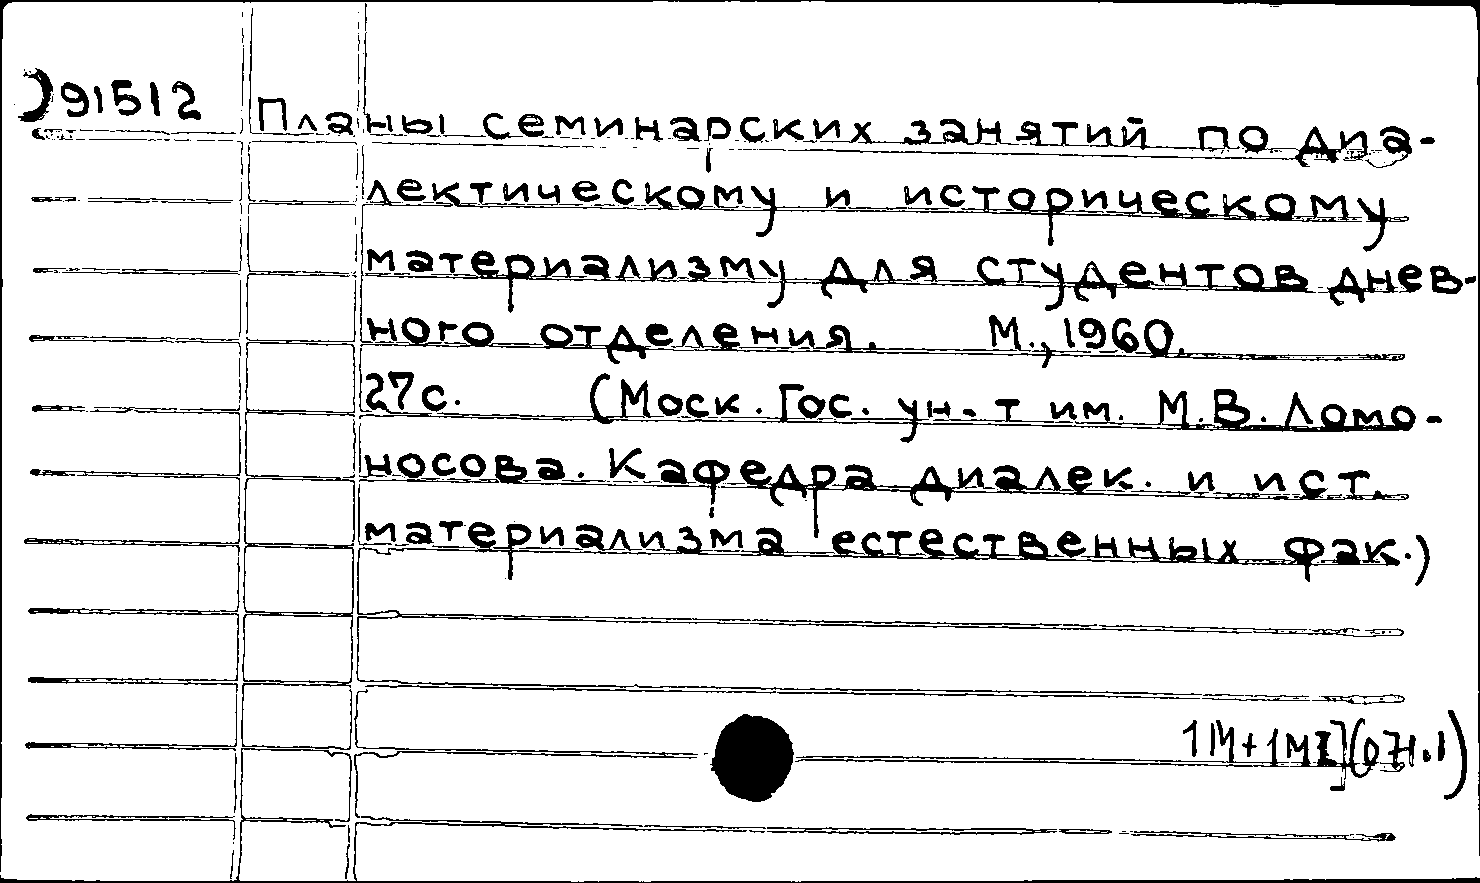 91512 Планы семинарских занятий по диа-
лектическому и историческому
материализму для студентов днев-
ного отделения. М., 1960.
27с. (Моск. Гос. ун-т им. М.В. Ломо-
носова. Кафедра диалек. и ист.
материализма естественных фак.)
1М+1МI](071.1)